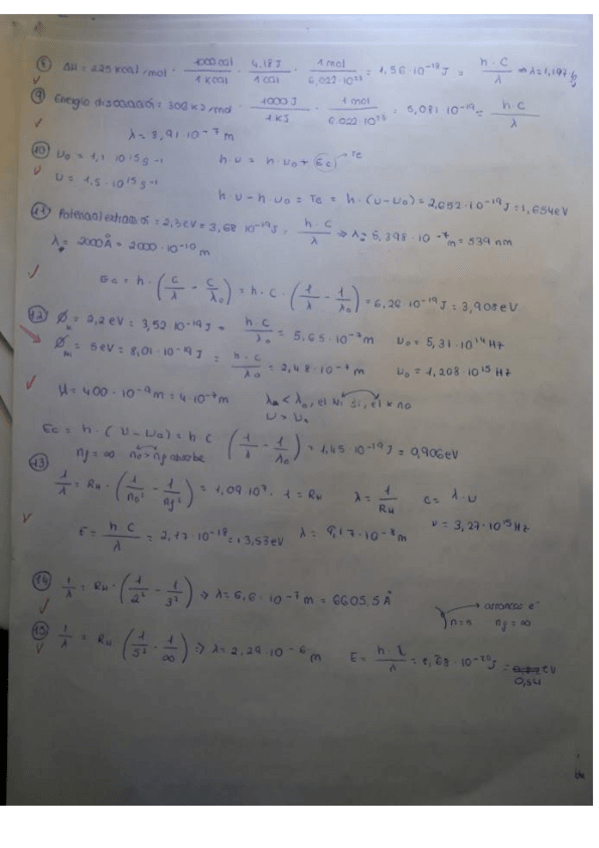 8 ΔH = 225 kcal/mol · 1000 cal / 1 kcal · 4,18 J / 1 cal · 1 mol / 6,022·10²³ = 1,56·10⁻¹⁸ J = h·c / λ ⇒ λ = 1,197
9 Energía disociación = 306 kJ/mol · 1000 J / 1 kJ · 1 mol / 6,022·10²³ = 5,081·10⁻¹⁹ = h·c / λ
λ = 3,91·10⁻⁷ m
10 υ₀ = 1,1·10¹⁵ s⁻¹ h·υ = h·υ₀ + Ec → Te
υ = 1,5·10¹⁵ s⁻¹
h·υ - h·υ₀ = Te = h·(υ-υ₀) = 2,652·10⁻¹⁹ J = 1,654 eV
11 Potencial = 2,3 eV = 3,68·10⁻¹⁹ J = h·c / λ ⇒ λ₀ = 5,398·10⁻⁷ m = 539 nm
λ = 2000 Å = 2000·10⁻¹⁰ m
Ec = h·(c/λ - c/λ₀) = h·c·(1/λ - 1/λ₀) = 6,26·10⁻¹⁹ J = 3,908 eV
12 Ø = 2,2 eV = 3,52·10⁻¹⁹ J = h·c / λ₀ = 5,65·10⁻⁷ m υ₀ = 5,31·10¹⁴ Hz
Ø = 5 eV = 8,01·10⁻¹⁹ J = h·c / λ₀ = 2,48·10⁻⁷ m υ₀ = 1,208·10¹⁵ Hz
= 400·10⁻⁹ m = 4·10⁻⁷ m λ < λ₀, el Ni sí, el no
υ > υ₀
Ec = h·(υ-υ₀) = h·c·(1/λ - 1/λ₀) = 1,45·10⁻¹⁹ J = 0,906 eV
nf = ∞ n₀ → nf absorbe
13 1/λ = RH·(1/n₀² - 1/nf²) = 1,09·10⁷·1 = RH λ = 1/RH c = λ·υ
E = h·c / λ = 2,17·10⁻¹⁸ = 13,53 eV λ = 9,17·10⁻⁸ m υ = 3,27·10¹⁵ Hz
14 1/λ = RH·(1/2² - 1/3²) ⇒ λ = 6,6·10⁻⁷ m = 6605,5 Å
arrancas e⁻
n=5 nf=∞
15 1/λ = RH (1/5² - 1/∞) ⇒ λ = 2,29·10⁻⁶ m E = h·c / λ = 8,68·10⁻²⁰ J = eV
0,54